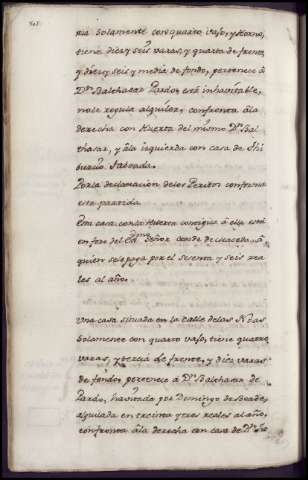 ria solamente con quarto vajo, y Horno,
tiene diez y seis varas, y quarta de frente,
y diez y seis y media de fondo, pertenece à
Dn. Balthasar Pardo, està inhavitable,
no le regula alquiler, confronta àla
derecha con Huerta del mismo Dn. Bal
thasar, y àla izquierda con casa de
Taboada.
Por la declaracion delos Peritos confronta
esta partida
Esta casa con la Huerta contigua à ella està
en foro del Señor conde de Maceda, à
quien se le paga por el sesenta y seis rea
les al año.
Una casa situada en la calle de las
solamente con quarto vajo, tiene quatro
varas, y tercia de frente, y diez varas
de fondo, pertenece à Dn. Balthasar de
Pardo, havitada por Domingo de
alquilada en treinta y tres reales al año,
confronta àla derecha con casa de Dn.